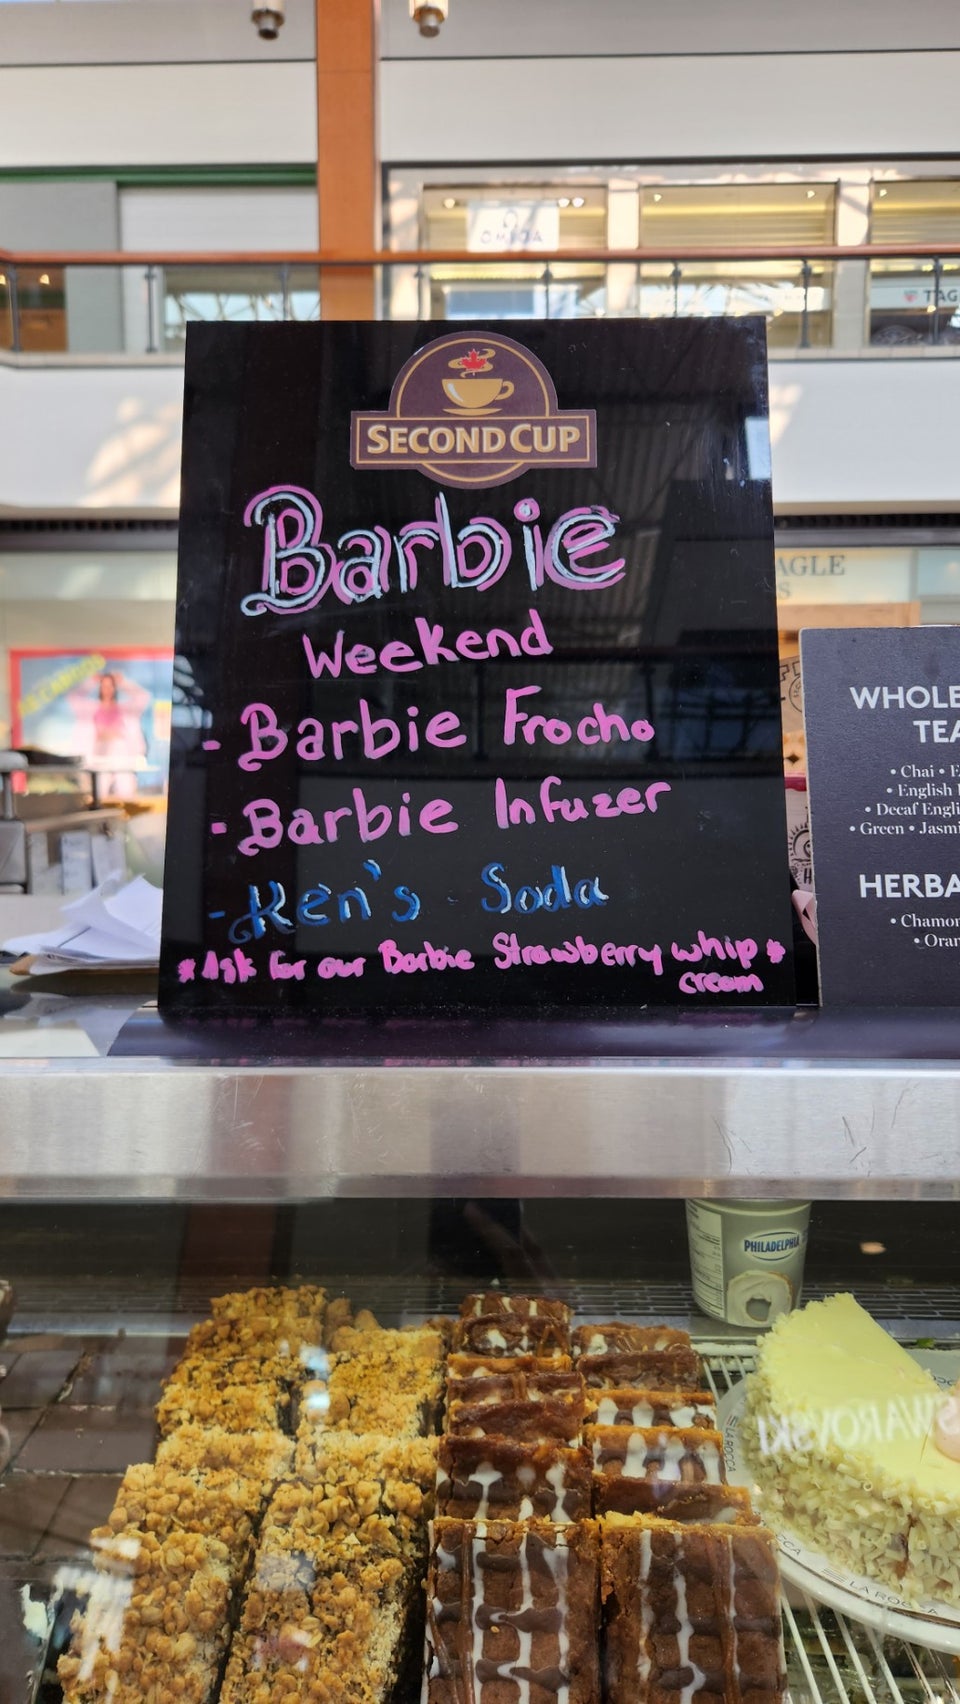 OMEGA
TAG
SECOND CUP
Barbie
Weekend
- Barbie Frocho
- Barbie Infuzer
- Ken's Soda
* Ask for our Barbie Strawberry whip *
cream
WHOLE
• Chai •
• English
• Decaf Engli
• Green • Jasmi
HERBA
• Chamo
• Oran
PHILADELPHIA
SWAROVSKI
LA ROCCA
LA ROCCA